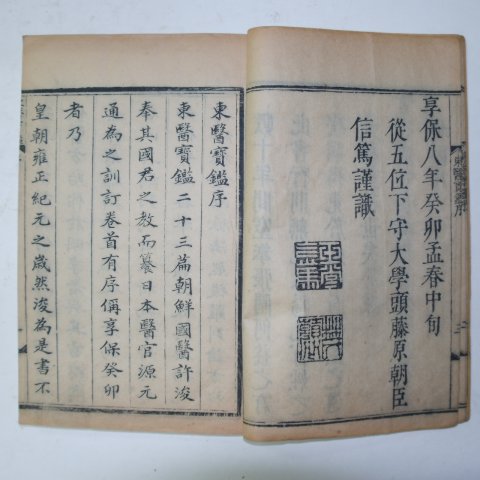 享保八年癸卯孟春中旬
從五位下守大學頭藤原朝臣
信篤謹識
東醫寶鑑序
東醫寶鑑二十三篇朝鮮國醫許浚
奉其國君之敎而纂日本醫官源元
通為之訓訂卷首有序偁享保癸卯
者乃
皇朝雍正紀元之歲然浚為是書不